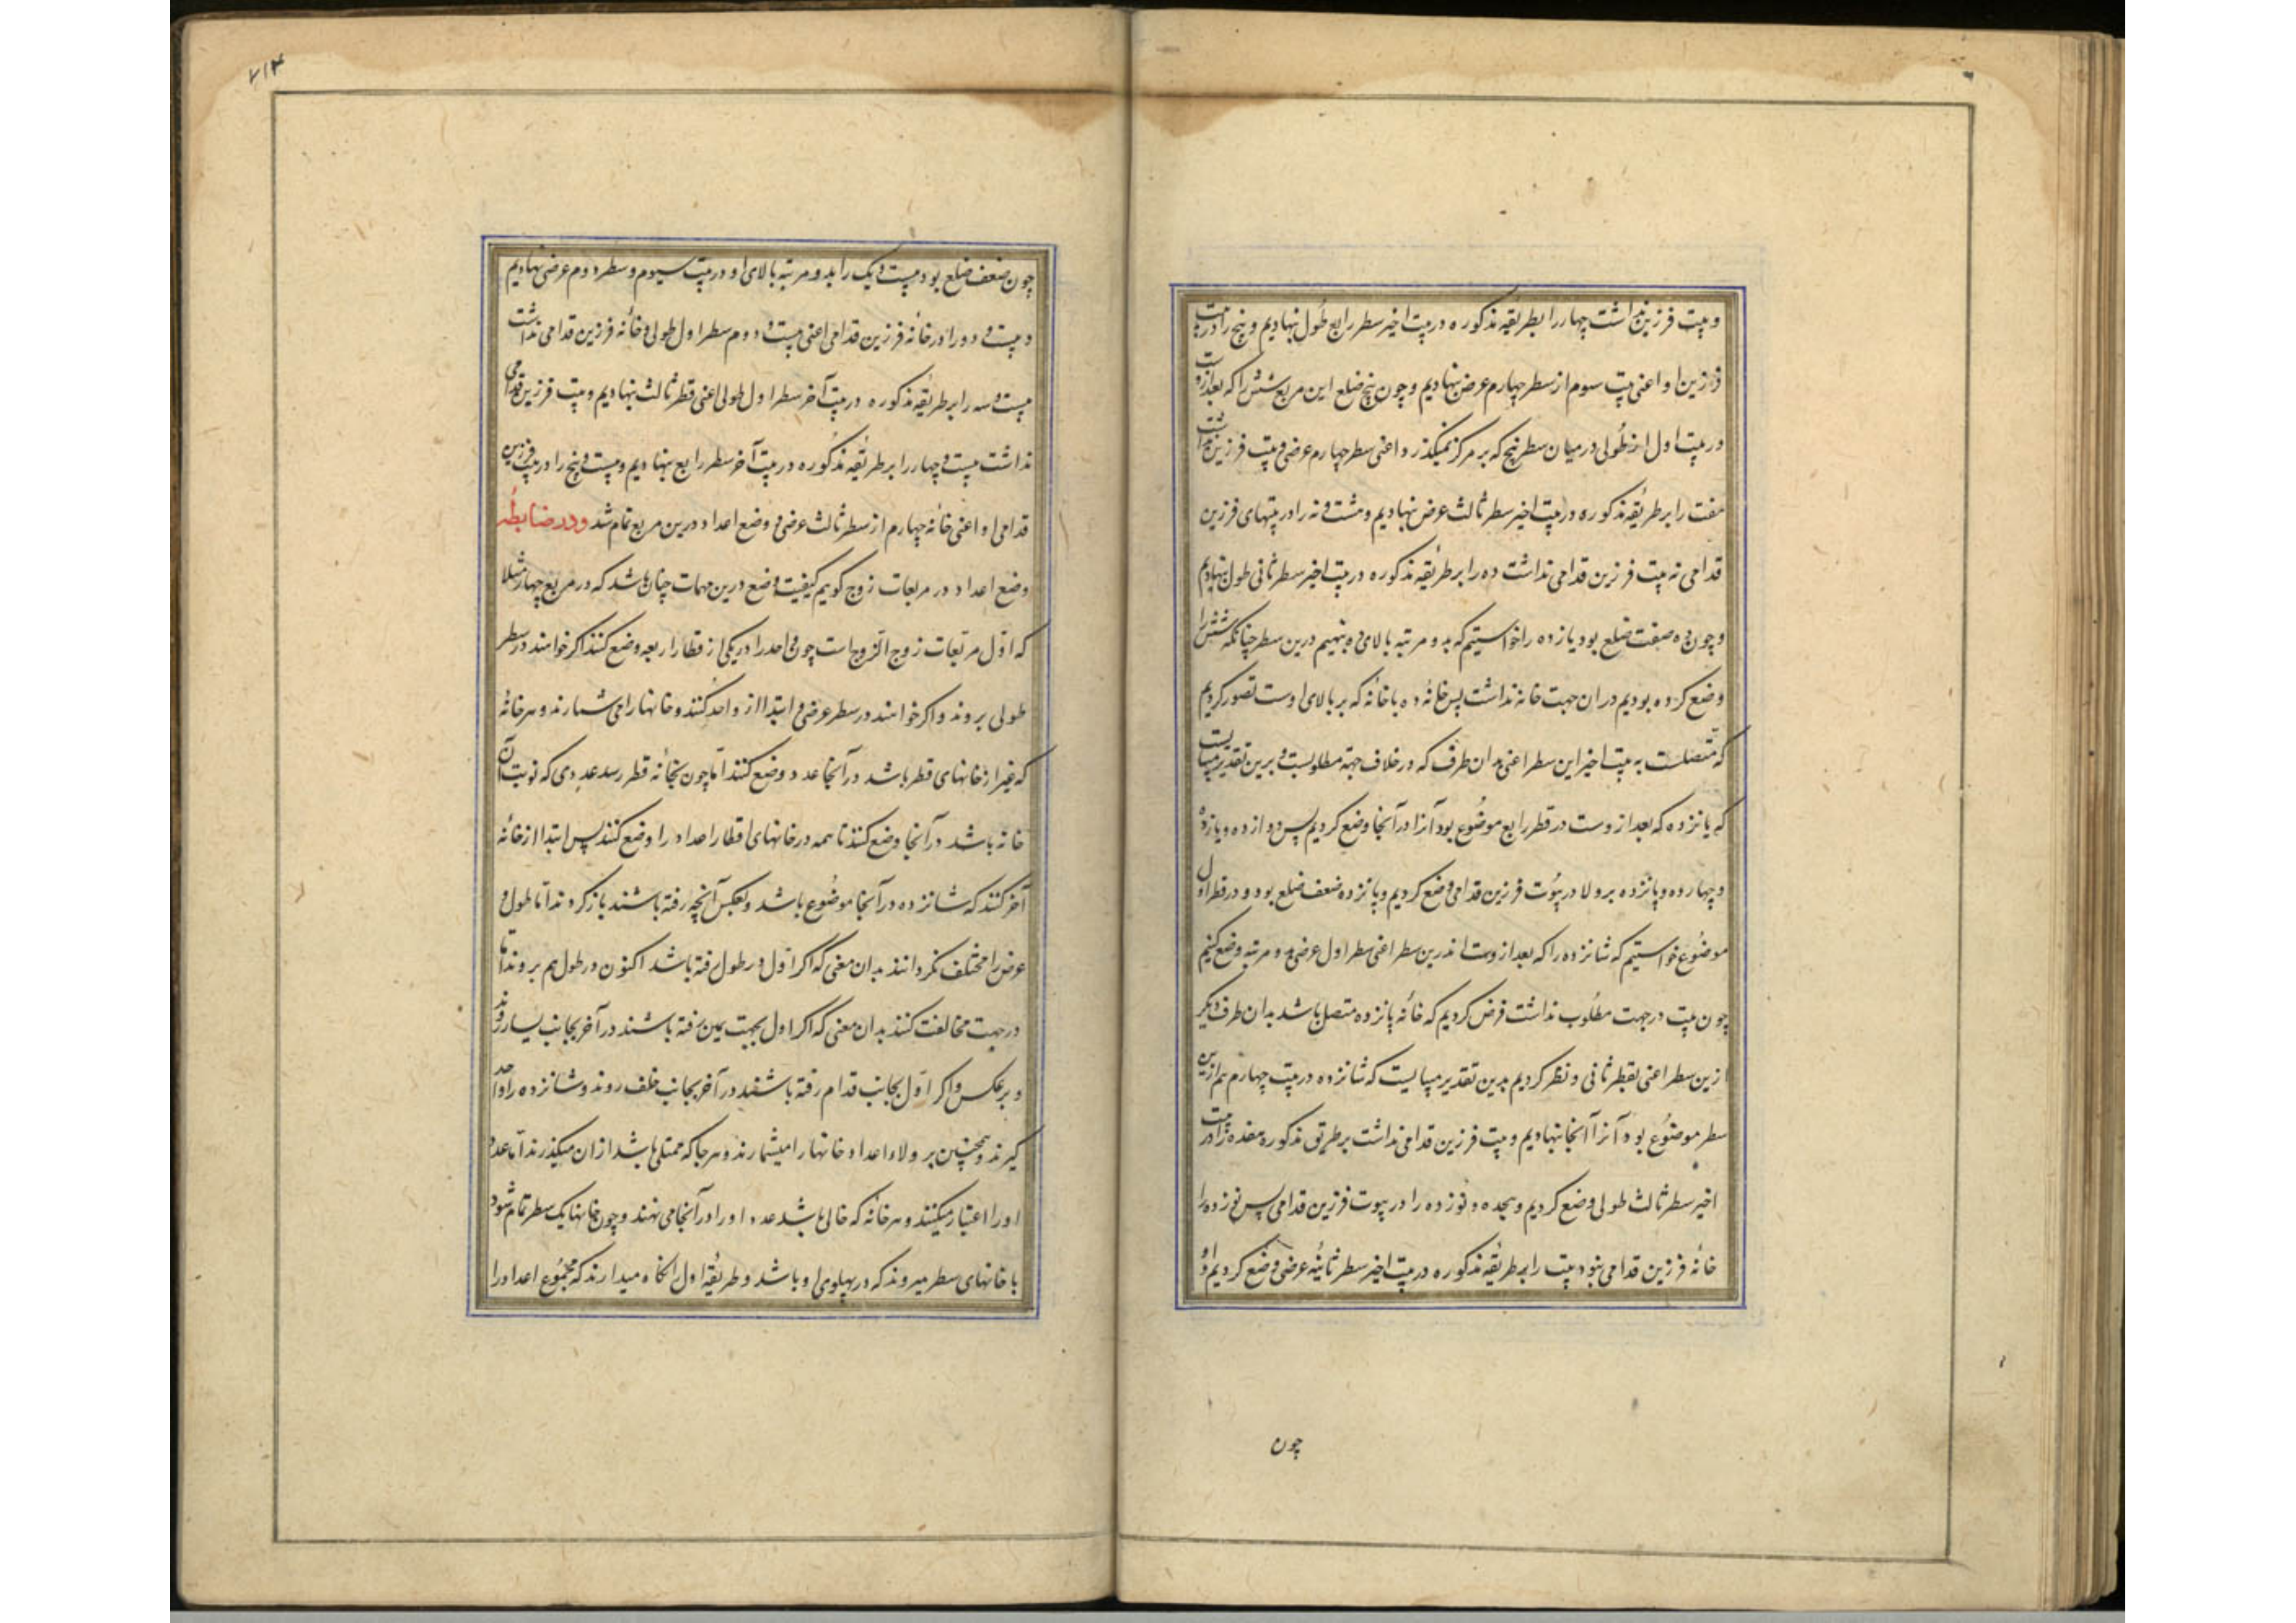 و بیت فرزین نداشت چهار را بطریقه مذکوره در بیت اخیر سطر رابع طول نهادیم و پنج را در بیت
فرزین او اعنی بیت سوم از سطر چهارم عرض نهادیم و چون پنج ضلع این مربع شش را که بعد ازوست
در بیت اول از طولی در میان سطر پنج که بر مرکز نمیگذرد اعنی سطر چهارم عرضی و بیت فرزین نداشت
هفت را بر طریقه مذکوره در بیت اخیر سطر ثالث عرض نهادیم و هشت و نه را در بیتهای فرزین
قدامی نه بیت فرزین قدامی نداشت ده را بر طریقه مذکوره در بیت اخیر سطر ثانی طول نهادیم
و چون ده ضعف ضلع بود یازده را خواستیم که بدو مرتبه بالای ده بنهیم درین سطر چنانکه شش را
وضع کرده بودیم در ان جهت خانه نداشت پس خانه ده با خانه که بر بالای اوست تصور کردیم
که متصلست به بیت اخیر این سطر اعنی بدان طرف که در خلاف جهة مطلوبست و برین تقدیر میبایست
که یانزده که بعد از وست در قطر رابع موضوع بود آنرا در آنجا وضع کردیم پس دوازده و یازده
و چهارده و پانزده بر ولا در بیوت فرزین قدامی وضع کردیم و پانزده ضعف ضلع بود و در قطر اول
موضوع خواستیم که شانزده را که بعد از وست اندرین سطر اعنی سطر اول عرضی بدو مرتبه وضع کنیم
چون بیت در جهت مطلوب نداشت فرض کردیم که خانه پانزده متصل باشد بدان طرف دیگر
ازین سطر اعنی بقطر ثانی و نظر کردیم بدین تقدیر میبایست که شانزده در بیت چهارم هم ازین
سطر موضوع بود آنرا آنجا نهادیم و بیت فرزین قدامی نداشت بر طریق مذکوره هفده را در بیت
اخیر سطر ثالث طولی وضع کردیم و هجده و نوزده را در بیوت فرزین قدامی پس نوزده را
خانه فرزین قدامی نبود بیست را بر طریقه مذکوره در بیت اخیر سطر ثانیه عرضی وضع کردیم و او
چون
۷۱۴
چون ضعف ضلع بود بیست و یک را بدو مرتبه بالای او در بیت سیوم و سطر دوم عرضی نهادیم
و بیست و دو را در خانه فرزین قدامی اعنی بیت دوم سطر اول طولی و خانه فرزین قدامی نداشت
بیست و سه را بر طریقه مذکوره در بیت آخر سطر اول طولی اعنی قطر ثالث نهادیم و بیت فرزین قدامی
نداشت بیست و چهار را بر طریقه مذکوره در بیت آخر سطر رابع نهادیم و بیست و پنج را در بیت فرزین
قدامی او اعنی خانه چهارم از سطر ثالث عرضی و وضع اعداد درین مربع تمام شد و در ضابطه
وضع اعداد در مربعات زوج گوییم کیفیت وضع درین مهمات چنان باشد که در مربع چهار مثلا
که اول مربعات زوج الزوج است چون واحد را در یکی از قطار اربعه وضع کنند اگر خواهند در سطر
طولی بروند و اگر خواهند در سطر عرضی و ابتدا از واحد کنند و خانها را می شمارند و هر خانه
که غیر از خانهای قطر باشد در آنجا عدد وضع کنند اما چون بخانه قطر رسد عددی که نوبت آن
خانه باشد در آنجا وضع کنند تا همه در خانهای اقطار اعداد را وضع کنند پس ابتدا از خانه
آخر کنند که شانزده در آنجا موضوع باشد و بعکس آنچه رفته باشند باز گردند اما طول و
عرض را مختلف نگردانند بدان معنی که اگر اول در طول رفته باشد اکنون در طول هم بروند اما
در جهت مخالفت کنند بدان معنی که اگر اول بجهت یمین رفته باشند در آخر بجانب یسار روند
و بر عکس و اگر اول بجانب قدام رفته باشند در آخر بجانب خلف روند و شانزده را واحد
گیرند و همچنین بر ولا و اعداد خانها را میشمارند و هر جا که ممتلی باشد از ان میگذرند اما عدد
او را اعتبار میکنند و هر خانه که خالی باشد عدد او را در آنجا می نهند و چون خانهای یک سطر تمام شود
با خانهای سطر میروند که در پهلوی او باشد و طریقه اول نگاه میدارند که مجموع اعداد را